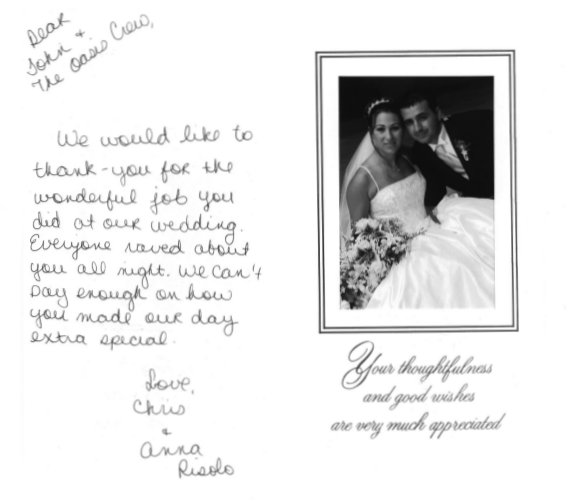 Dear
John &
The Oasis Crew,
We would like to
thank-you for the
wonderful job you
did at our wedding.
Everyone raved about
you all night. We can't
say enough on how
you made our day
extra special.
Love,
Chris
&
Anna
Risolo
Your thoughtfulness
and good wishes
are very much appreciated